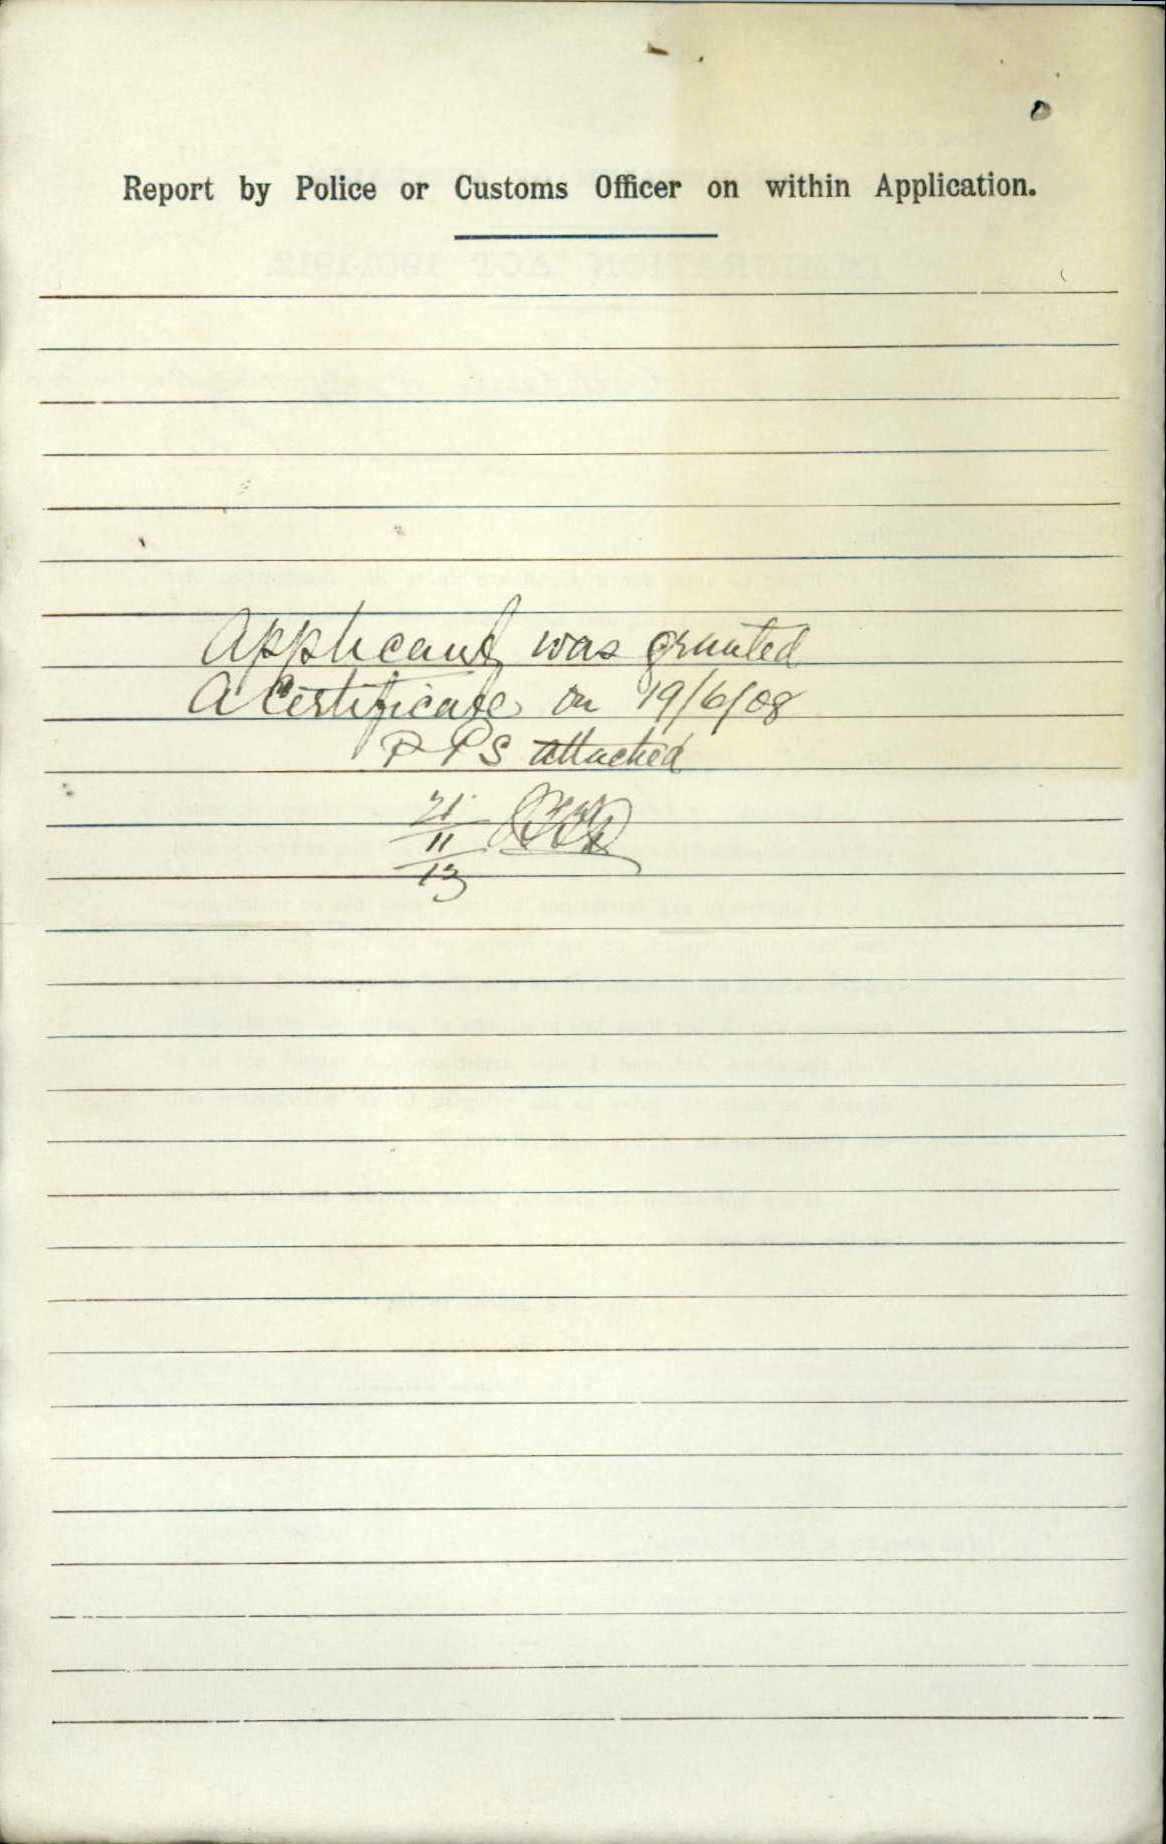 Report by Police or Customs Officer on within Application.
Applicant was granted
A Certificate on 19/6/08
P PS attached
21
11
13